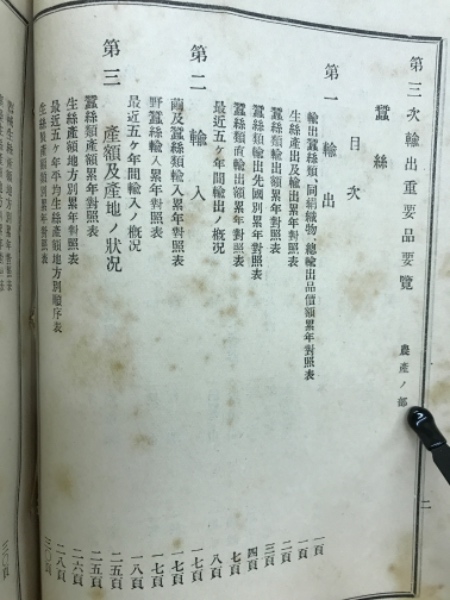 第三次輸出重要品要覽 農產ノ部
二
蠶絲
目次
第一 輸出
輸出蠶絲類、同絹織物、總輸出品價額累年對照表 一頁
生絲產出及輸出累年對照表 二頁
蠶絲類輸出額累年對照表 三頁
蠶絲類輸出先國別累年對照表 四頁
蠶絲類直輸出額累年對照表 七頁
最近五ケ年間輸出ノ槪況 八頁
第二 輸入 一七頁
繭及蠶絲類輸入累年對照表 一七頁
野蠶絲輸入累年對照表 一七頁
最近五ケ年間輸入ノ槪況 一八頁
第三 產額及產地ノ狀況 二五頁
蠶絲類產額累年對照表 二五頁
生絲產額地方別累年對照表 二六頁
最近五ケ年平均生絲產額地方別順序表 二八頁
三〇頁